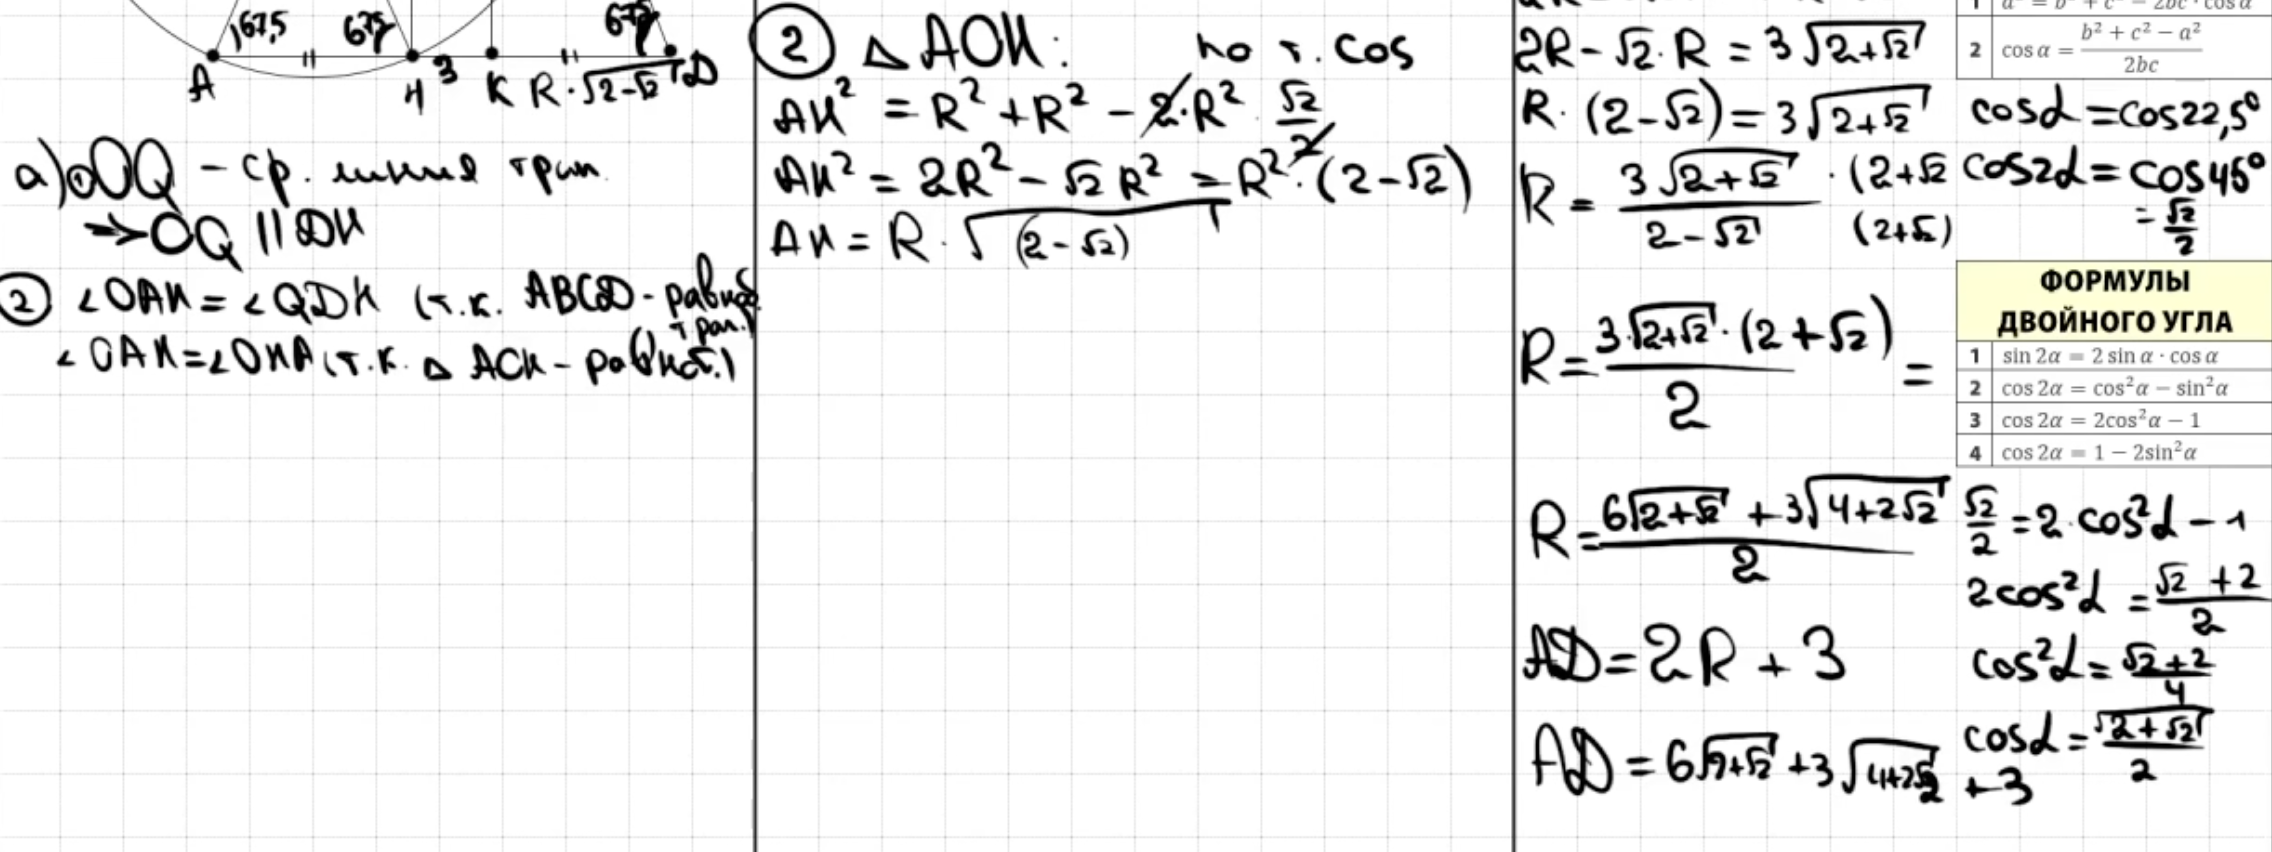 67,5 67,5 67,5
A H 3 K R·√(2-√2) D
а) OQ - ср. линия трап.
→ OQ || DH
2 ∠OAH = ∠QDH (т.к. ABCD - равноб. трап.)
∠OAH = ∠OHA (т.к. △ AOH - равноб.)
2 △ AOH: по т. cos
AH² = R² + R² - 2·R² · √2/2
AH² = 2R² - √2 R² = R²·(2-√2)
AH = R·√(2-√2)
2R - √2·R = 3√(2+√2)
R·(2-√2) = 3√(2+√2)
R = 3√(2+√2)/(2-√2) · (2+√2)/(2+√2)
R = 3√(2+√2)·(2+√2)/2 =
R = (6√(2+√2) + 3√(4+2√2))/2
AD = 2R + 3
AD = 6√(2+√2) + 3√(4+2√2) + 3
2 cos α = (b² + c² − a²)/2bc
cosα = cos22,5°
cos2α = cos45°
= √2/2
ФОРМУЛЫ
ДВОЙНОГО УГЛА
1 sin 2α = 2 sin α · cos α
2 cos 2α = cos²α − sin²α
3 cos 2α = 2cos²α − 1
4 cos 2α = 1 − 2sin²α
√2/2 = 2·cos²α - 1
2cos²α = (√2+2)/2
cos²α = (√2+2)/4
cosα = √(2+√2)/2